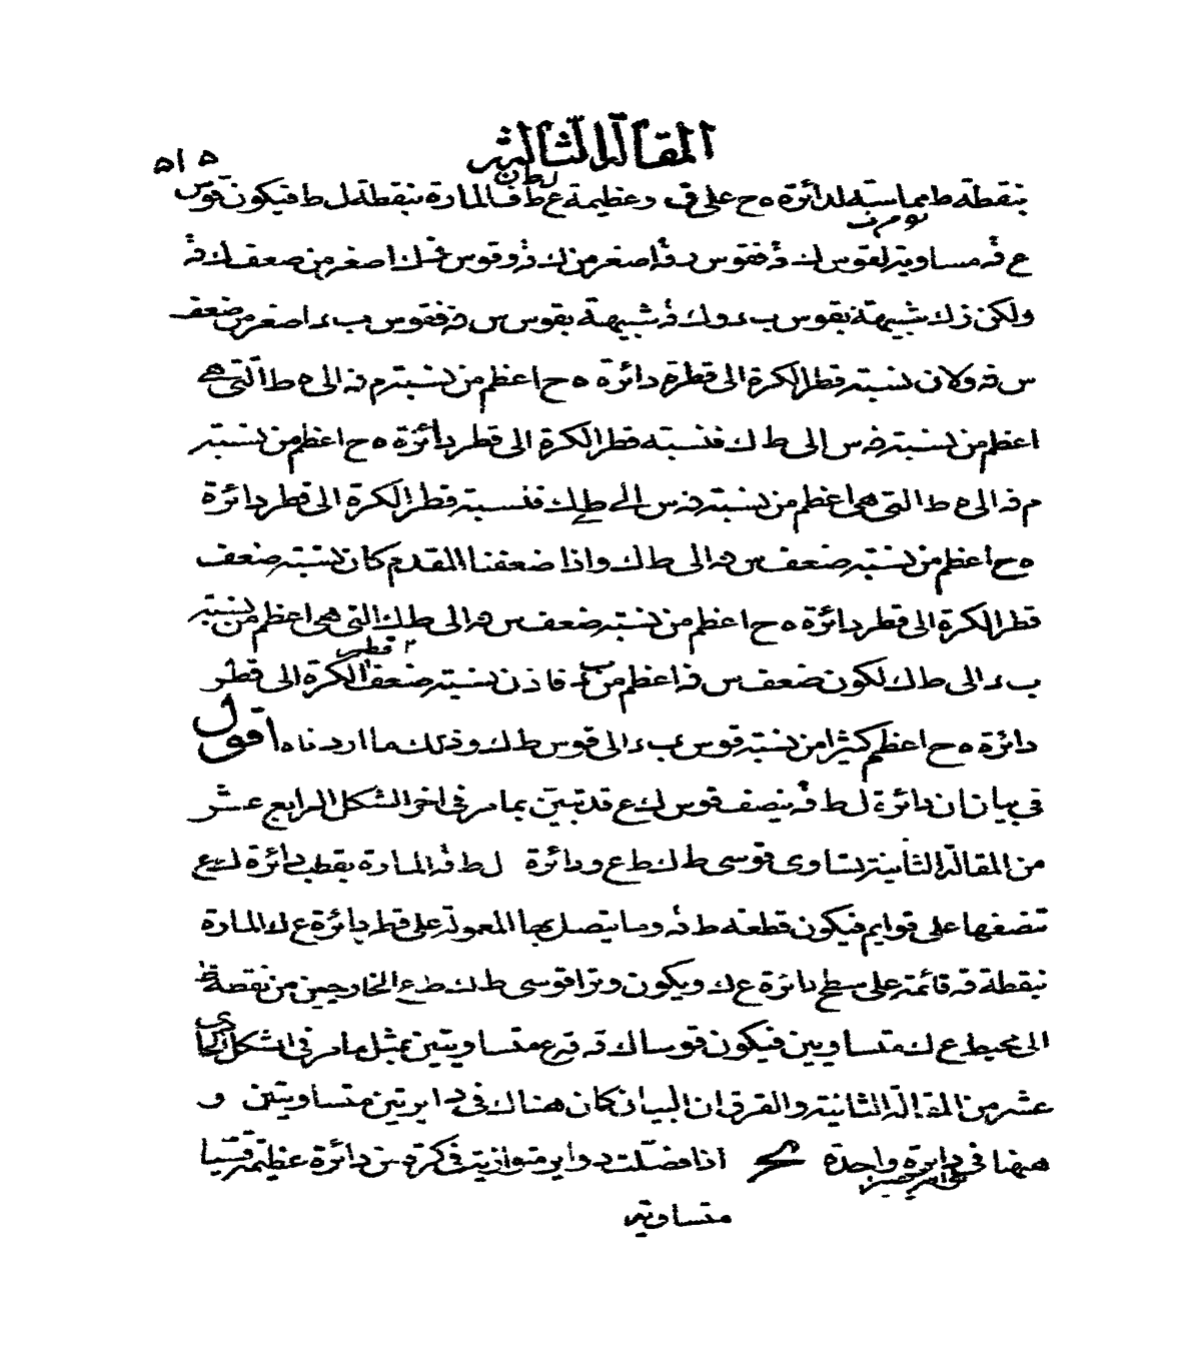 المقالة الثالثة
٥١٥
بنقطة ط مماسة لدائرة ه ح على ف وعظيمة ع ط ف المارة بنقطة ل ط فيكون قوس
ع ف مساوية لقوس ك ف فقوس اصغر من ك ف وقوس اصغر من ضعف ك ف
ولكن ز ك شبيهة بقوس ب د و ك ف شبيهة بقوس س ف فقوس ب د اصغر من ضعف
س ف ولان نسبة قطر الكرة الى قطر دائرة ه ح اعظم من نسبة م ف الى ه ط التي هي
اعظم من نسبة ف س الى ط ك فنسبة قطر الكرة الى قطر دائرة ه ح اعظم من نسبة
م ف الى ه ط التي هي اعظم من نسبة ف س الى ط ك فنسبة قطر الكرة الى قطر دائرة
ه ح اعظم من نسبة ضعف س ف الى ط ك واذا ضعفنا المقدم كان نسبة ضعف
قطر الكرة الى قطر دائرة ه ح اعظم من نسبة ضعف س ف الى ط ك التي هي اعظم من نسبة
ب د الى ط ك لكون ضعف س ف اعظم من ب د فاذن نسبة ضعف قطر الكرة الى قطر
دائرة ه ح اعظم كثيرا من نسبة قوس ب د الى قوس ط ك وذلك ما اردناه اقول
في بيان ان دائرة ل ط ف ينصف قوس ك ع قد تبين بما مر في اخر الشكل الرابع عشر
من المقالة الثانية تساوى قوسى ط ك ط ع ودائرة ل ط ف المارة بقطب دائرة ك ع
تنصفها على قوايم فيكون قطعة ط ف وما يتصل بها المعمولة على قطر دائرة ع ك المارة
بنقطة ف قائمة على سطح دائرة ع ك ويكون وترا قوسى ط ك ط ع الخارجين من نقطة ط
الى محيط ع ك متساويين فيكون قوسا ك ف ف ع متساويتين بمثل ما مر في الشكل الحادى
عشر من المقالة الثانية والفرق ان البيان كان هناك في دايرتين متساويتين و
ههنا في دايرة واحدة اذا فصلت دواير متوازية في كرة من دائرة عظيمة قسيا
متساوية